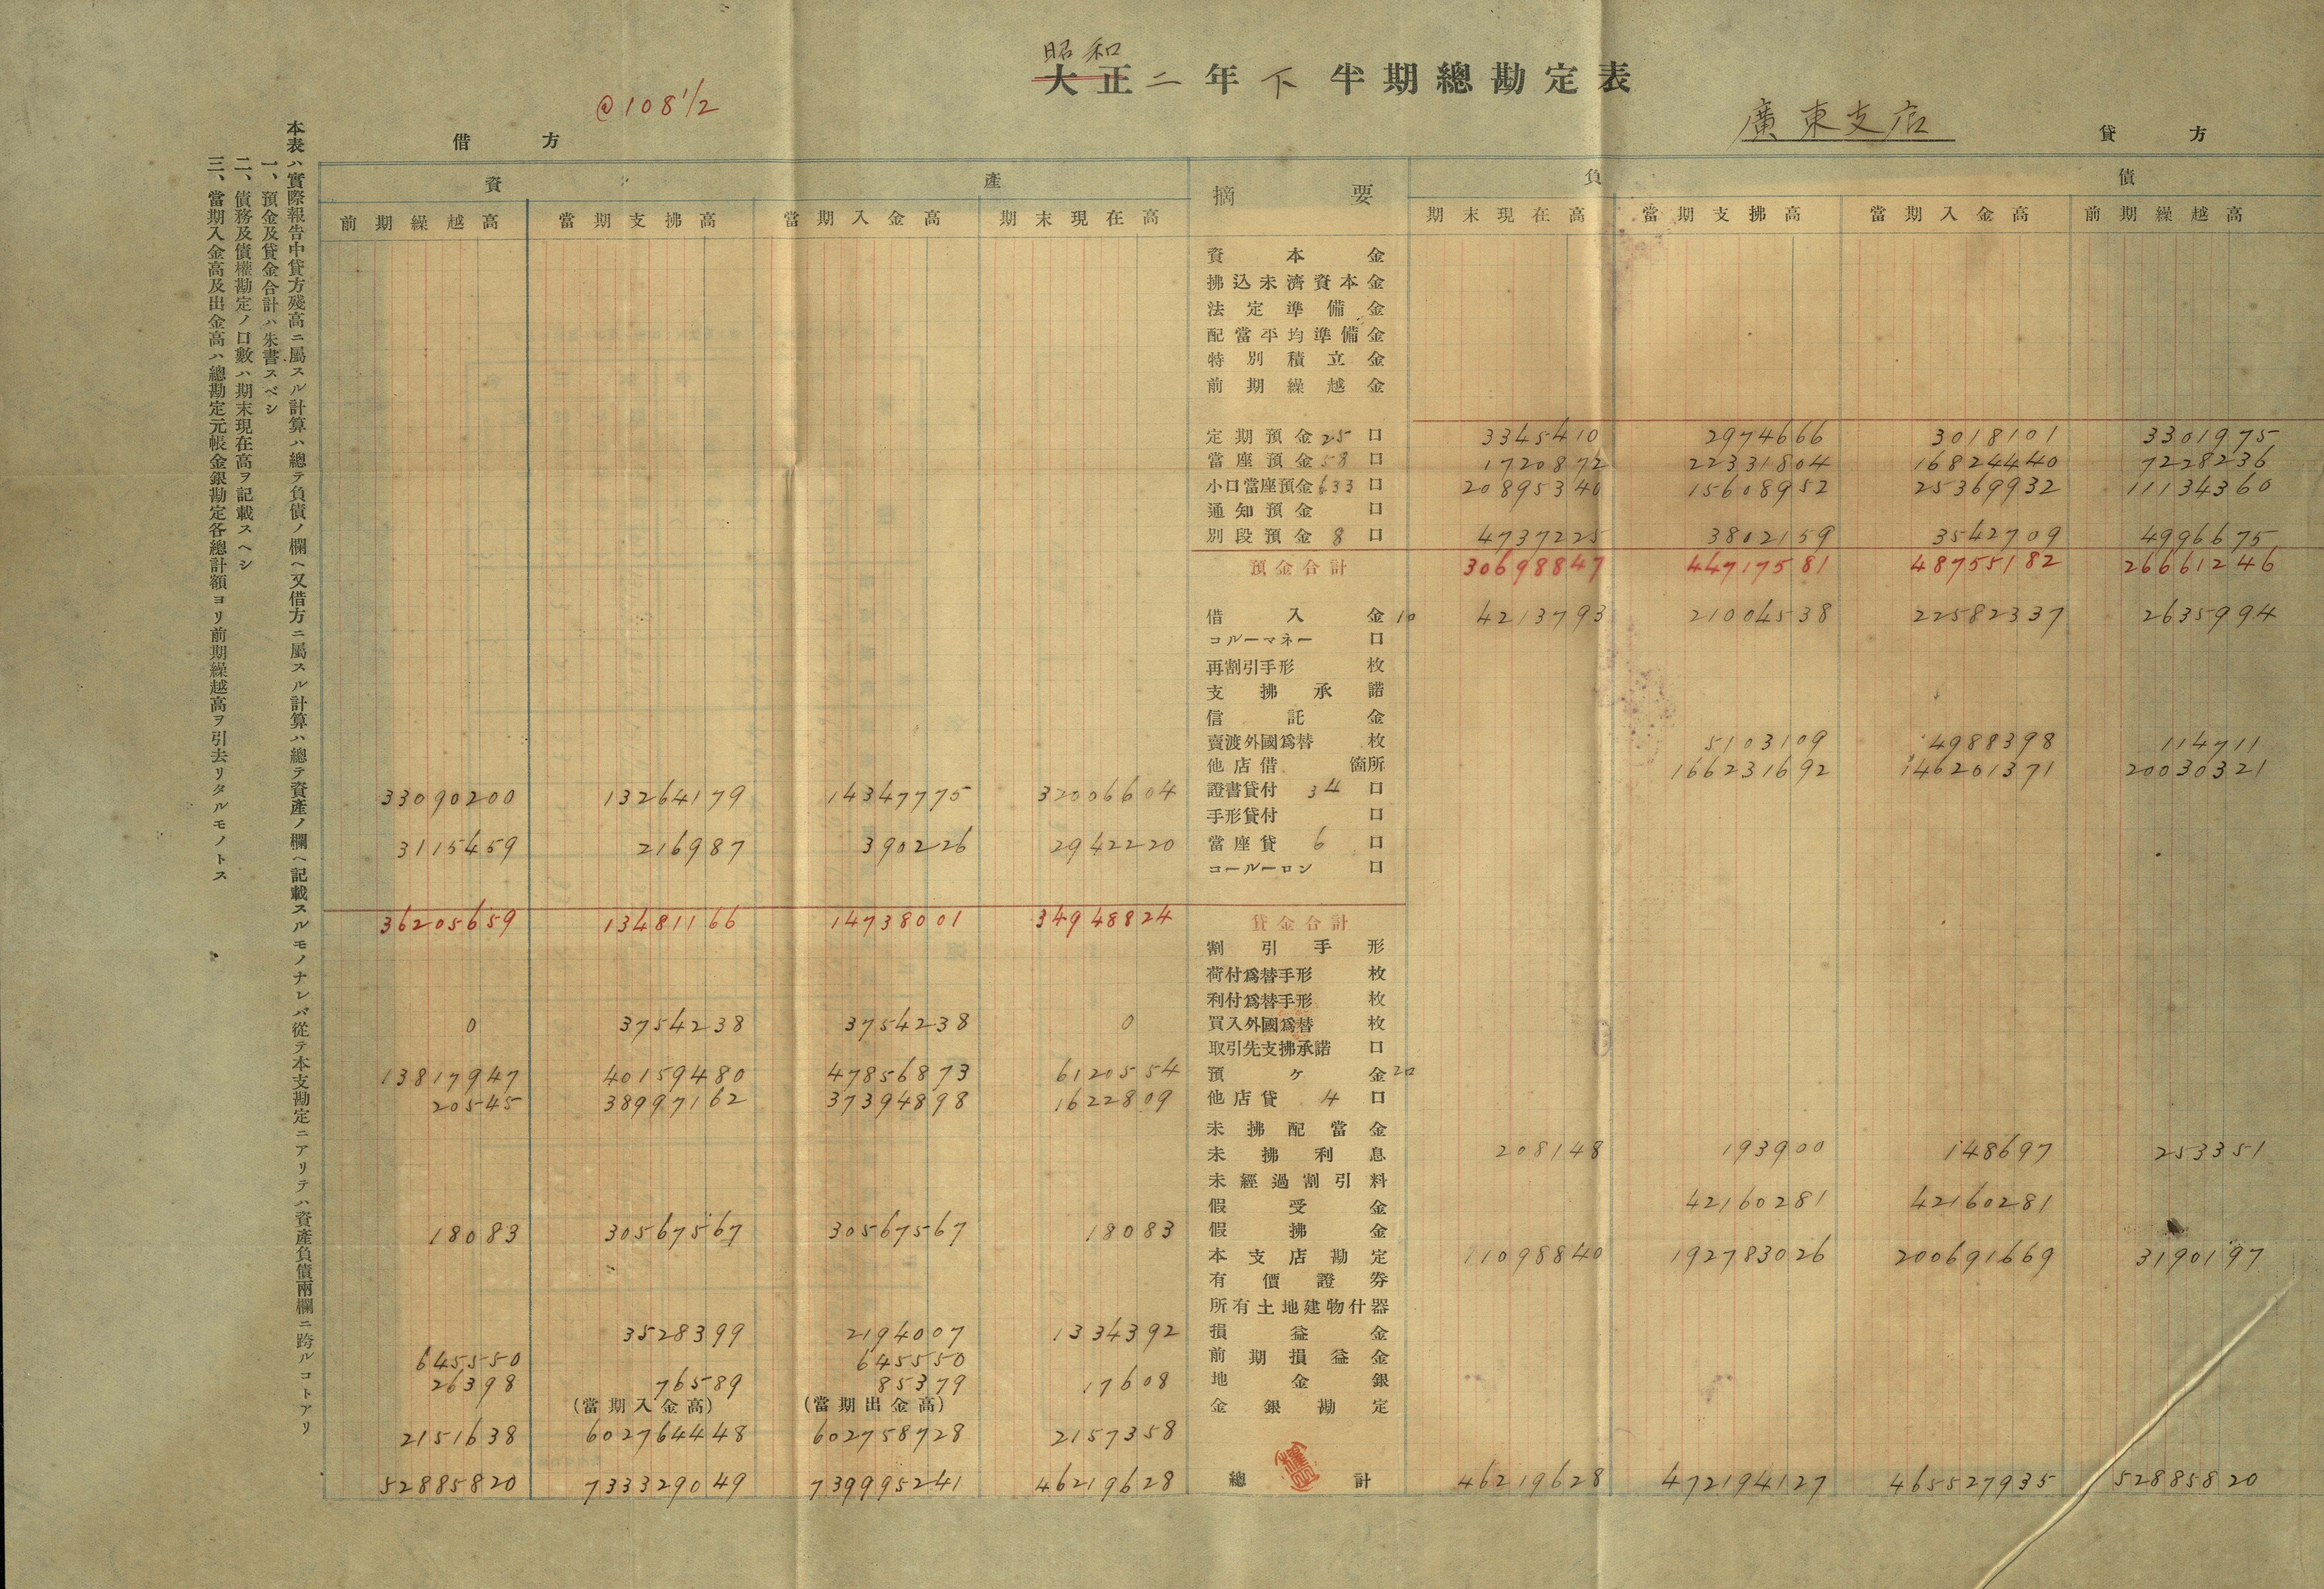 昭和
大正二年下半期總勘定表
@108 1/2
廣東支店
借方
貸方
本表ハ實際報告中貸方殘高ニ屬スル計算ハ總テ負債ノ欄ヘ又借方ニ屬スル計算ハ總テ資產ノ欄ヘ記載スルモノナレバ從テ本支勘定ニアリテハ資產負債兩欄ニ跨ルコトアリ
一、預金及貸金合計ハ朱書スベシ
二、債務及債權勘定ノ口數ハ期末現在高ヲ記載スヘシ
三、當期入金高及出金高ハ總勘定元帳金銀勘定各總計額ヨリ前期繰越高ヲ引去リタルモノトス
資產 摘要 負債
前期繰越高 當期支拂高 當期入金高 期末現在高 期末現在高 當期支拂高 當期入金高 前期繰越高
資本金
拂込未濟資本金
法定準備金
配當平均準備金
特別積立金
前期繰越金
定期預金 25 口 3345410 2974666 3018101 3301975
當座預金 58 口 1720872 22331804 16824440 7228236
小口當座預金 633 口 20895340 15608952 25369932 11134360
通知預金 口
別段預金 8 口 4737225 3802159 3542709 4996675
預金合計 30698847 44717581 48755182 26661246
借入金 10 4213793 21004538 22582337 2635994
コルーマネー 口
再割引手形 枚
支拂承諾
信託金
賣渡外國爲替 枚 5103109 4988398 114711
他店借 箇所 166231692 146201371 20030321
33090200 13264179 14347775 32006604 證書貸付 34 口
手形貸付 口
3115459 216987 390226 2942220 當座貸 6 口
コールーロン 口
36205659 13481166 14738001 34948824 貸金合計
割引手形
荷付爲替手形 枚
利付爲替手形 枚
0 3754238 3754238 0 買入外國爲替 枚
取引先支拂承諾 口
13817947 40159480 47856873 6120554 預ケ金 20
20545 38997162 37394898 1622809 他店貸 4 口
未拂配當金
未拂利息 208148 193900 148697 253351
未經過割引料
假受金 42160281 42160281
18083 30567567 30567567 18083 假拂金
本支店勘定 11098840 192783026 200691669 3190197
有價證券
所有土地建物什器
3528399 2194007 1334392 損益金
645550 645550 前期損益金
26398 76589 85379 17608 地金銀
(當期入金高) (當期出金高) 金銀勘定
2151638 602764448 602758728 2157358
52885820 733329049 739995241 46219628 總計 46219628 472194127 465527935 52885820